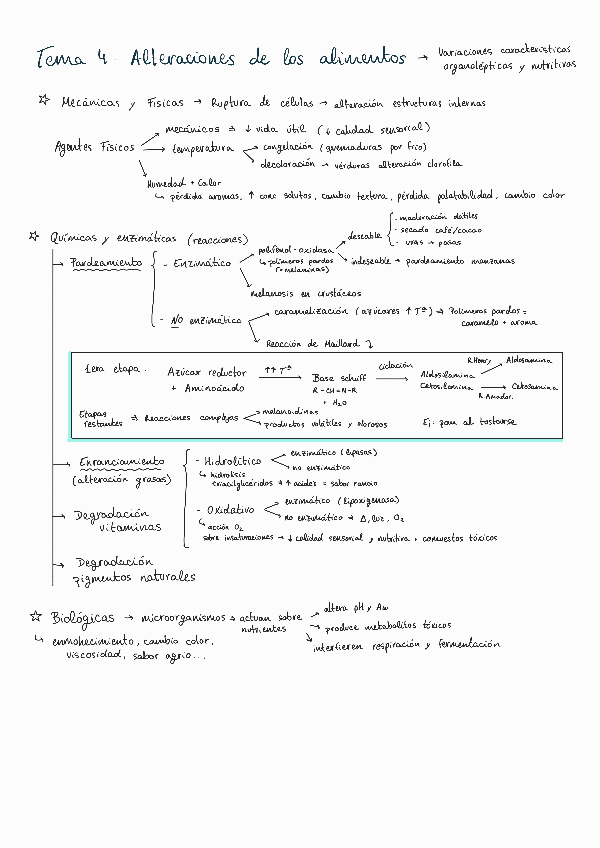 Tema 4. Alteraciones de los alimentos → Variaciones características
organolépticas y nutritivas
☆ Mecánicas y Físicas → Ruptura de células → alteración estructuras internas
Agentes Físicos
mecánicos ⇒ ↓ vida útil (↓ calidad sensorial)
temperatura
congelación (quemaduras por frío)
decoloración → verduras alteración clorofila
Humedad + Calor
↳ pérdida aromas, ↑ conc solutos, cambio textura, pérdida palatabilidad, cambio color
☆ Químicas y enzimáticas (reacciones)
→ Pardeamiento
- Enzimático
polifenol-oxidasa
↳ polímeros pardos
(=melaninas)
deseable
- maduración dátiles
- secado café/cacao
- uvas → pasas
indeseable → pardeamiento manzanas
melanosis en crustáceos
- No enzimático
caramelización (azúcares ↑ Tª) → Polímeros pardos =
caramelo + aroma
Reacción de Maillard ↴
1era etapa.
Azúcar reductor
+ Aminoácido
↑↑ Tª
Base schiff
R-CH=N-R
+ H₂O
ciclación
Aldosilamina
Cetosilamina
R.Heney
Aldosamina
R.Amador.
Cetosamina
Etapas
restantes ⇒ Reacciones complejas
melanoidinas
productos volátiles y olorosos
Ej: pan al tostarse
→ Enranciamiento
(alteración grasas)
- Hidrolítico
enzimático (lipasas)
no enzimático
↳ hidrólisis
triacilglicéridos ⇒ ↑ acidez = sabor rancio
- Oxidativo
enzimático (lipoxigenasa)
no enzimático → Δ, luz, O₂
↳ acción O₂
sobre insaturaciones → ↓ calidad sensorial y nutritiva + compuestos tóxicos
→ Degradación
vitaminas
→ Degradación
pigmentos naturales
☆ Biológicas → microorganismos → actúan sobre
nutrientes
altera pH y Aw
produce metabolitos tóxicos
interfieren respiración y fermentación
↳ enmohecimiento, cambio color,
viscosidad, sabor agrio...